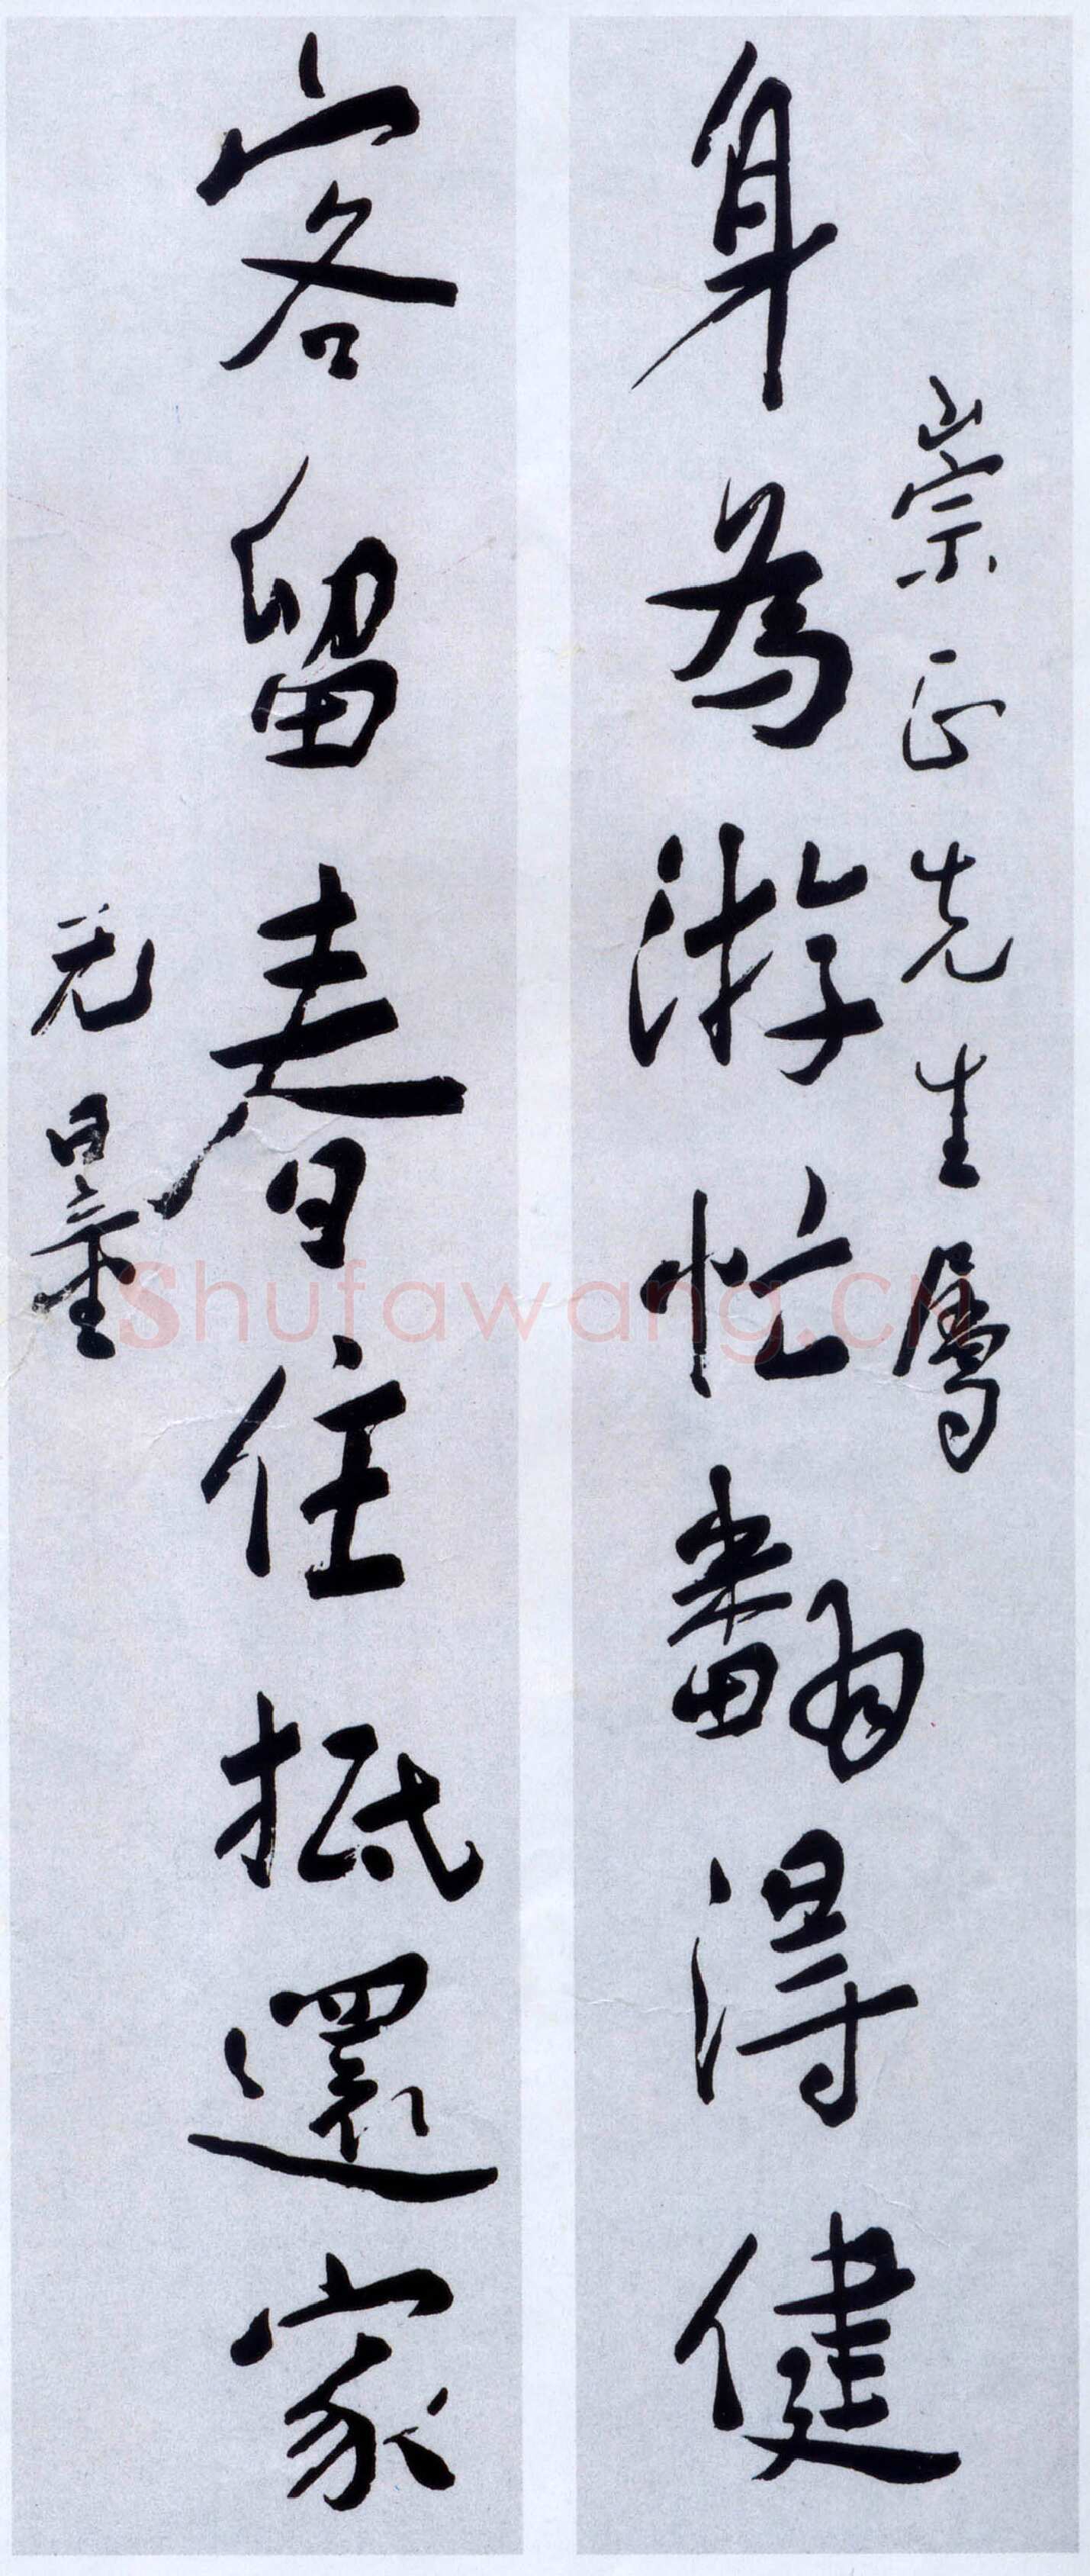 崇正先生屬
身為游忙翻得健
客留春住抵還家
无量
Shufawang.cn